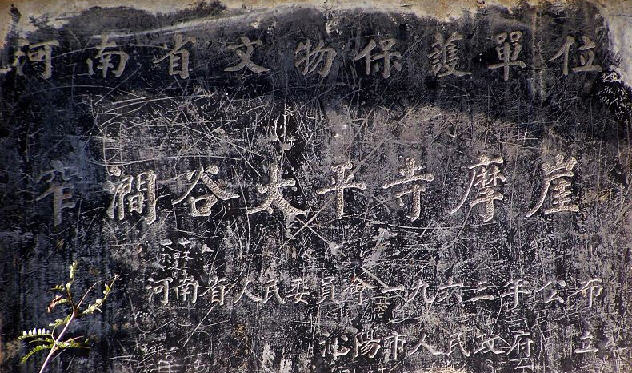 河南省文物保護單位
窄澗谷太平寺摩崖
河南省人民委員會一九六三年公布
沁陽市人民政府 立